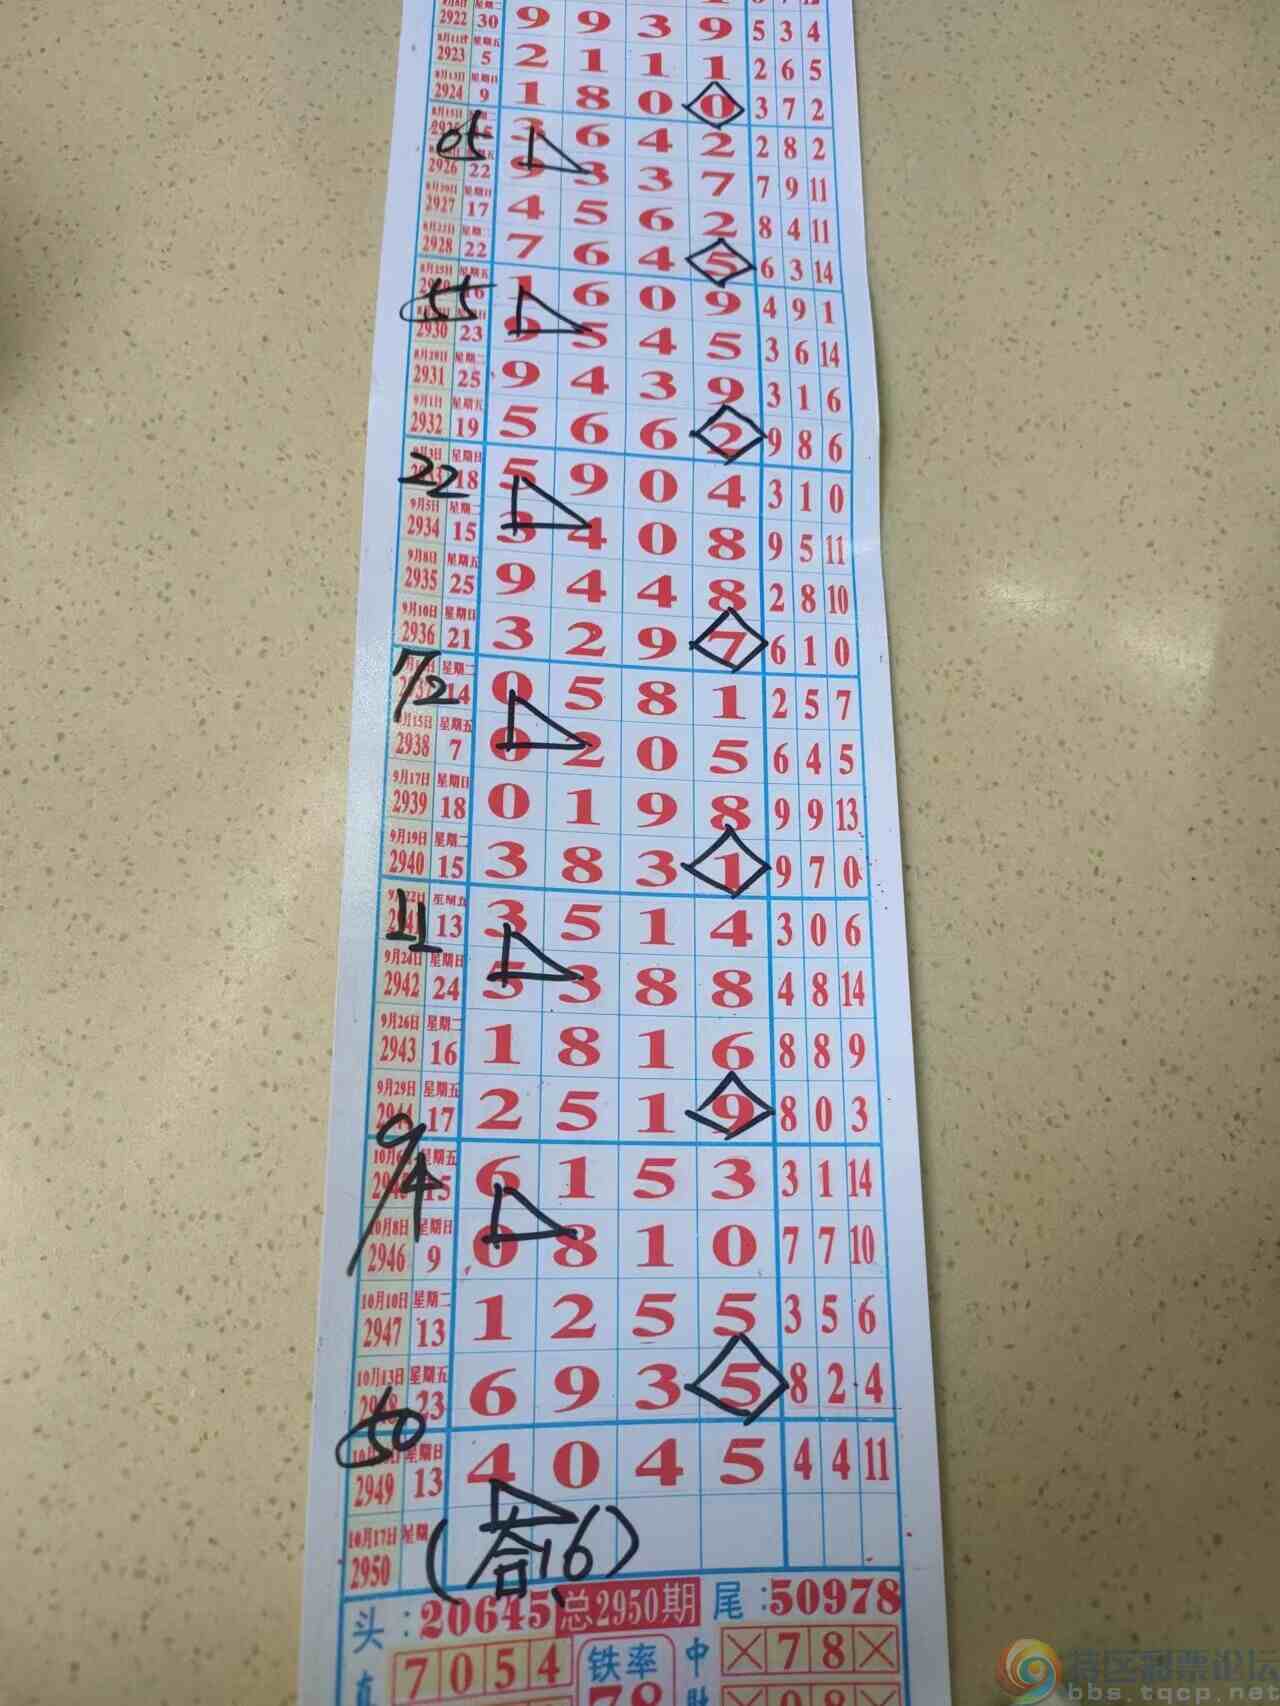 2922 30 9 9 3 9 5 3 4
8月11日 星期五
2923 5 2 1 1 1 2 6 5
8月13日 星期日
2924 9 1 8 0 0 3 7 2
8月15日 星期二
05 3 6 4 2 2 8 2
2926 22 9 3 3 7 7 9 11
8月20日 星期日
2927 17 4 5 6 2 8 4 11
8月22日 星期二
2928 22 7 6 4 5 6 3 14
8月25日 星期五
55 16 1 6 0 9 4 9 1
2930 23 9 5 4 5 3 6 14
8月29日 星期二
2931 25 9 4 3 9 3 1 6
9月1日 星期五
2932 19 5 6 6 2 9 8 6
9月3日 星期日
22 18 5 9 0 4 3 1 0
9月5日 星期二
2934 15 3 4 0 8 9 5 11
9月8日 星期五
2935 25 9 4 4 8 2 8 10
9月10日 星期日
2936 21 3 2 9 7 6 1 0
星期二
7/2 14 0 5 8 1 2 5 7
9月15日 星期五
2938 7 0 2 0 5 6 4 5
9月17日 星期日
2939 18 0 1 9 8 9 9 13
9月19日 星期二
2940 15 3 8 3 1 9 7 0
9月22日 星期五
11 13 3 5 1 4 3 0 6
9月24日 星期日
2942 24 5 3 8 8 4 8 14
9月26日 星期二
2943 16 1 8 1 6 8 8 9
9月29日 星期五
2944 17 2 5 1 9 8 0 3
10月6日 星期五
9/4 15 6 1 5 3 3 1 14
10月8日 星期日
2946 9 0 8 1 0 7 7 10
10月10日 星期二
2947 13 1 2 5 5 3 5 6
10月13日 星期五
2948 23 6 9 3 5 8 2 4
50 星期日
2949 13 4 0 4 5 4 4 11
10月17日 星期
2950 (合16)
头:20645 总2950期 尾:50978
直 7 0 5 4 铁率 中 7 8
78
特区彩票论坛
bbs.tqcp.net